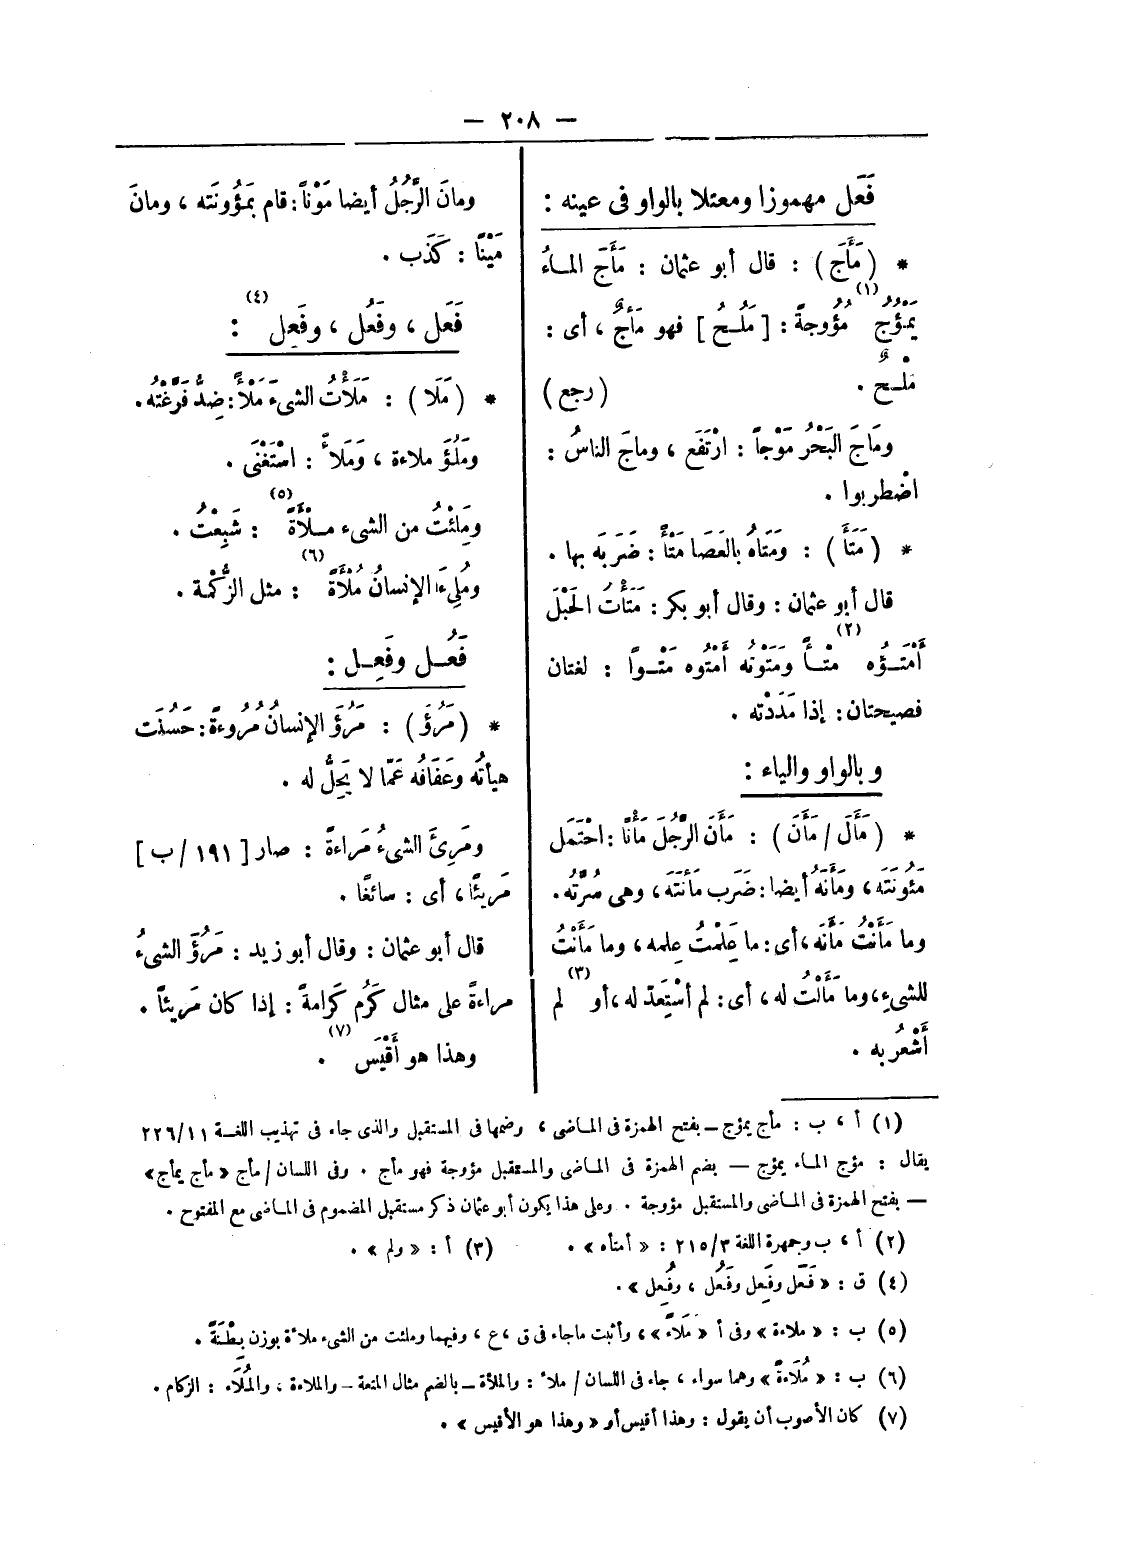 — ٢٠٨ —
فَعَل مهموزا ومعتلا بالواو فى عينه :
* (مَأَج) : قال أبو عثمان : مَأَجَ المـاءُ
يَمْؤُج (١) مُؤُوجةً : [ مَلُـحَ ] فهو مَأْجٌ ، أى :
مَلْـحٌ . (رجع)
ومَاجَ البَحْرُ مَوْجاً : ارْتَفَع ، وماجَ الناسُ :
اضْطربوا .
* (مَتَأَ) : ومَتَاهُ بالعَصَا مَتْأً : ضَرَبَه بها .
قال أبو عثمان : وقال أبو بكر : مَتَأْتُ الحَبْلَ
أَمْتَـؤُه (٢) مَتْـأً ومَتَوْتُه أمْتُوه مَتْـوًا : لغتان
فصيحتان : إذا مَدَدْته .
و بالواو والياء :
* (مَأَلَ / مَأَنَ) : مَأَنَ الرَّجُلَ مَأْنًا : احْتَمَل
مَئُونَتَه ، ومَأَنَهُ أيضا : ضَرَب مَأنَتَه ، وهى سُرَّتُه .
وما مَأَنْتُ مَأْنَه ، أى : ما عَلِمْتُ علمه ، وما مَأَنْتُ
للشىءِ ، وما مَأَلْتُ له ، أى : لم أسْتَعِدّ له ، أو (٣) لم
أَشْعُر به .
ومانَ الرَّجُلُ أيضا مَوْناً : قام بَمَؤُونَته ، ومانَ
مَيْنًا : كَذَب .
فَعَل ، وفَعُل ، وفَعِل (٤) :
* (مَلَا) : مَلَأْتُ الشىءَ مَلْأً : ضِدُّ فَرَّغْتُه .
ومَلُؤَ ملاءة ، ومَلَأً : اسْتَغْنَى .
ومَلِئْتُ من الشىء مـلْأَةً (٥) : شَبِعْتُ .
ومُلِىءَ الإنسانُ مُلْأَةً (٦) : مثل الزُّكْمة .
فَعُـل وفَعِـل :
* (مَرُؤَ) : مَرُؤَ الإنسانُ مُرُوءةً : حَسُنَت
هيأتُه وعَفَافُه عَمّا لا يَحِلُّ له .
ومَرِئَ الشىءُ مَراءةً : صار [ ١٩١ / ب ]
مَريئًا ، أى : سائغًا .
قال أبو عثمان : وقال أبو زيد : مَرُؤَ الشىءُ
مراءةً على مثال كَرُم كَرامةً : إذا كان مَريئاً .
وهذا هو أَقْيَس (٧) .
(١) أ ، ب : مأج يمؤج ــ بفتح الهمزة فى المـاضى ، وضمها فى المستقبل والذى جاء فى تهذيب اللغـة ٢٢٦/١١
يقال : مؤج المـاء يمؤج — بضم الهمزة فى المـاضى والمستقبل مؤوجة فهو مأج . وفى اللسان / مأج « مأج يمأج»
— بفتح الهمزة فى المـاضى والمستقبل مؤوجة . وعلى هذا يكون أبو عثمان ذكر مستقبل المضموم فى المـاضى مع المفتوح .
(٢) أ ، ب وجمهرة اللغة ٢١٥/٣ : « أمتأه » . (٣) أ : « ولم » .
(٤) ق : « فَعَل وفَعِل وفَعُل ، وفُعِل » .
(٥) ب : « ملاءة » وفى أ « مَلَاءً » ، وأثبت ماجاء فى ق ،ع ، وفيهما وملئت من الشىء ملأة بوزن بِطْنَةً .
(٦) ب : « مُلَاءَةً » وهما سواء ، جاء فى اللسان / ملأ : والملأة ــ بالضم مثال المتعة ــ والملاءة ، والمُلَاء : الزكام .
(٧) كان الأصوب أن يقول : وهذا أقيس أو « وهذا هو الأقيس » .